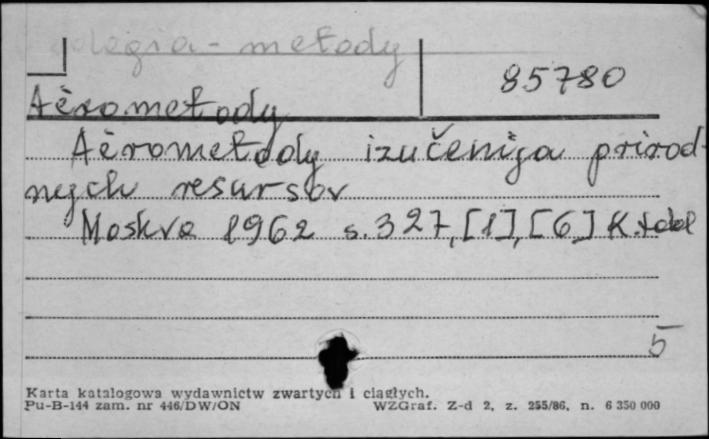 geologia - metody
85780
Aèrometody
Aèrometody izučenija prirod-
nych resursov
Moskva 1962 s. 327, [1], [6] K. tabl
5
Karta katalogowa wydawnictw zwartych i ciągłych.
Pu-B-144 zam. nr 446/DW/ON WZGraf. Z-d 2, z. 255/86, n. 6 350 000